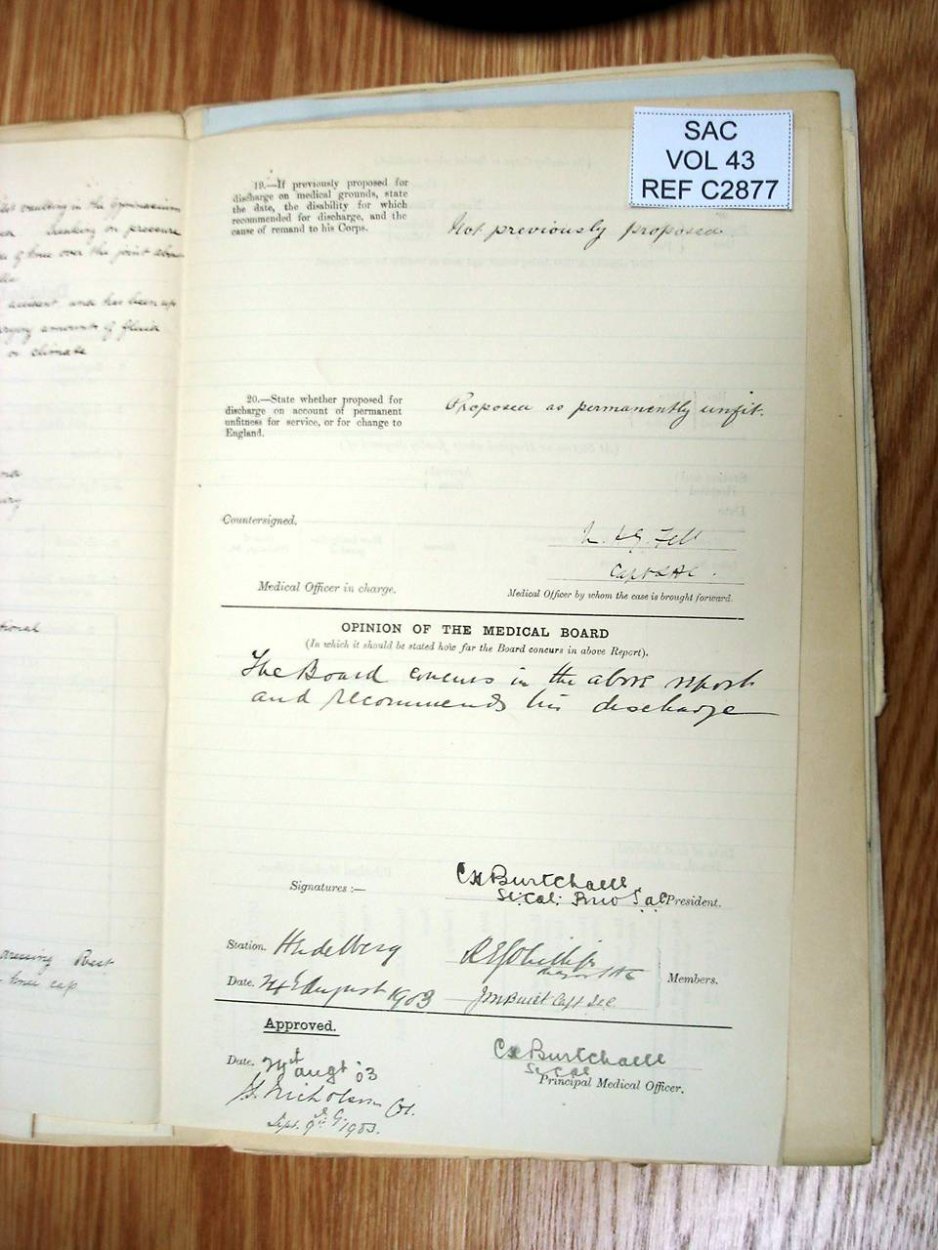 SAC
VOL 43
REF C2877
resulting in the Gymnasium
on pressure
of bone over the joint
accident and has been up
varying amounts of fluid
or climate
19.—If previously proposed for
discharge on medical grounds, state
the date, the disability for which
recommended for discharge, and the
cause of remand to his Corps.
Not previously proposed
20.—State whether proposed for
discharge on account of permanent
unfitness for service, or for change to
England.
Proposed as permanently unfit.
Countersigned,
Fell
Capt SAC.
Medical Officer in charge.
Medical Officer by whom the case is brought forward.
OPINION OF THE MEDICAL BOARD
(In which it should be stated how far the Board concurs in above Report).
The Board concurs in the above report
and recommends his discharge
Signatures :—
Burtchaell
President.
Station. Heidelberg
Members.
Date. 24th August 1903
Rest
knee cap
Approved.
Date. 24th augt 03
Burtchaell
Principal Medical Officer.
Nicholson Col.
Sept. 9th 1903.